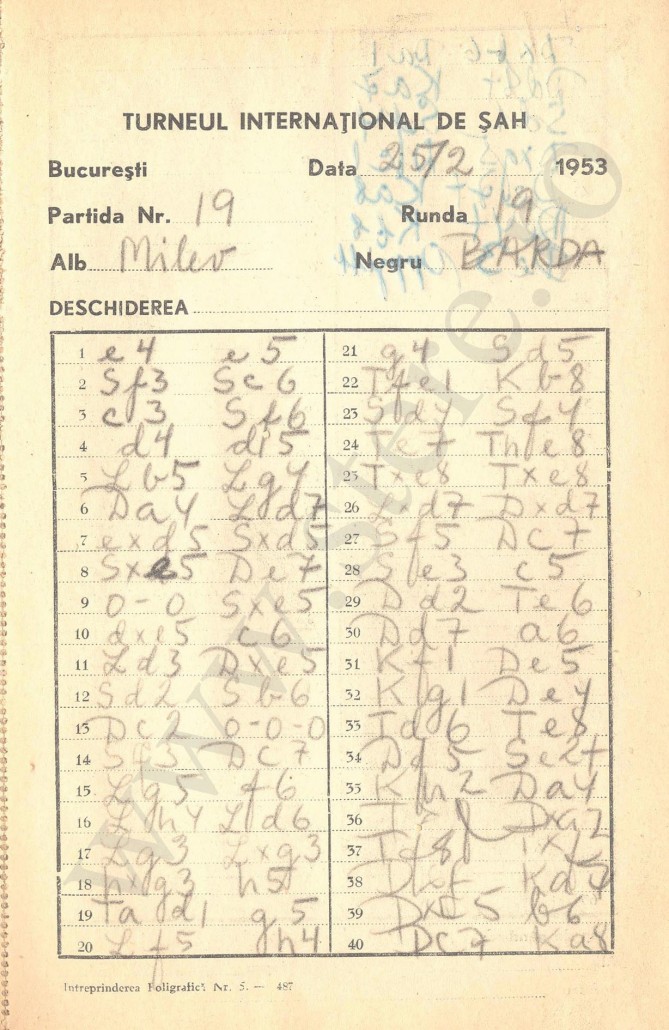 TURNEUL INTERNAŢIONAL DE ŞAH
Bucureşti Data 25/2 1953
Partida Nr. 19 Runda 19
Alb Milev Negru BARDA
DESCHIDEREA
1 e4 e5
2 Sf3 Sc6
3 c3 Sf6
4 d4 d5
5 Lb5 Lg4
6 Da4 Ld7
7 exd5 Sxd5
8 Sxe5 De7
9 0-0 Sxe5
10 dxe5 c6
11 Ld3 Dxe5
12 Sd2 Sb6
13 Dc2 0-0-0
14 Sf3 Dc7
15 Lg5 f6
16 Lh4 Ld6
17 Lg3 Lxg3
18 hxg3 h5
19 Tad1 g5
20 Lf5 h4
21 g4 Sd5
22 Tfe1 Kb8
23 Sd4 Sf4
24 Te7 The8
25 Txe8 Txe8
26 Lxd7 Dxd7
27 Sf5 Dc7
28 Se3 c5
29 Dd2 Te6
30 Dd7 a6
31 Kf1 De5
32 Kg1 De4
33 Td6 Te8
34 Df5 Se2+
35 Kh2 Da4
36 Dxa2
37
38
39 DxC5 b6
40 Dc7 Ka8
Intreprinderea Poligrafică Nr. 5. — 487
www.stere.ro